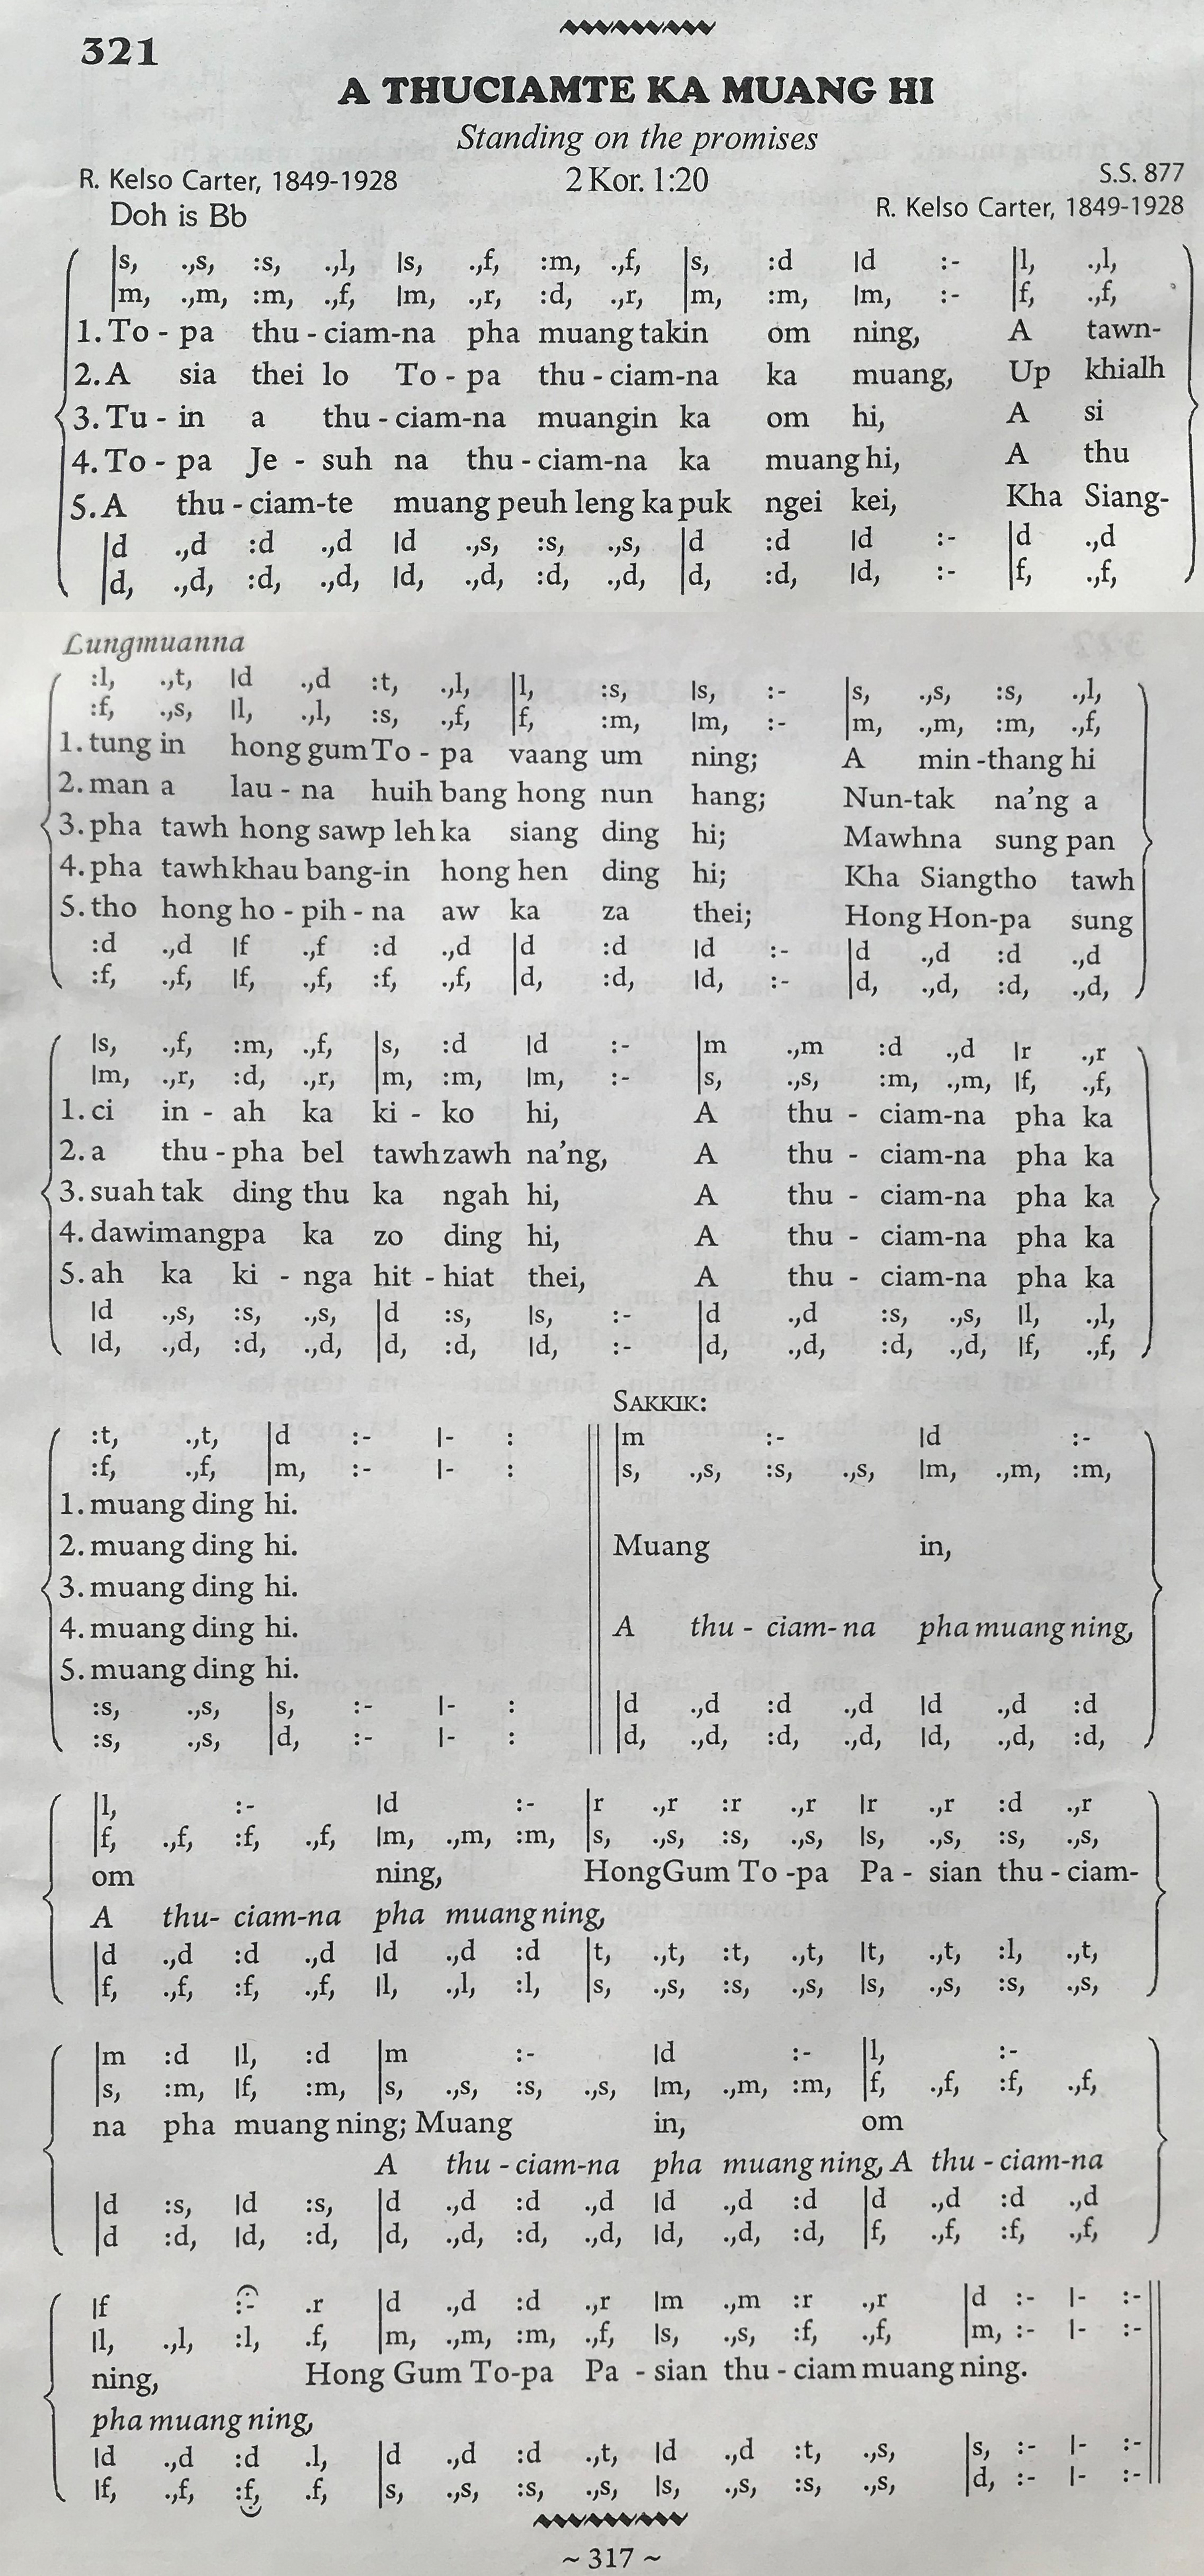 321
A THUCIAMTE KA MUANG HI
Standing on the promises
R. Kelso Carter, 1849-1928 2 Kor. 1:20 S.S. 877
Doh is Bb R. Kelso Carter, 1849-1928
|s, .,s, :s, .,l, |s, .,f, :m, .,f, |s, :d |d :- |l, .,l,
|m, .,m, :m, .,f, |m, .,r, :d, .,r, |m, :m, |m, :- |f, .,f,
1. To - pa thu - ciam-na pha muang takin om ning, A tawn-
2. A sia thei lo To - pa thu - ciam-na ka muang, Up khialh
3. Tu - in a thu - ciam-na muangin ka om hi, A si
4. To - pa Je - suh na thu - ciam-na ka muang hi, A thu
5. A thu - ciam-te muang peuh leng ka puk ngei kei, Kha Siang-
|d .,d :d .,d |d .,s, :s, .,s, |d :d |d :- |d .,d
|d, .,d, :d, .,d, |d, .,d, :d, .,d, |d, :d, |d, :- |f, .,f,
Lungmuanna
:l, .,t, |d .,d :t, .,l, |l, :s, |s, :- |s, .,s, :s, .,l,
:f, .,s, |l, .,l, :s, .,f, |f, :m, |m, :- |m, .,m, :m, .,f,
1. tung in hong gum To - pa vaang um ning; A min -thang hi
2. man a lau - na huih bang hong nun hang; Nun-tak na'ng a
3. pha tawh hong sawp leh ka siang ding hi; Mawhna sung pan
4. pha tawh khau bang-in hong hen ding hi; Kha Siangtho tawh
5. tho hong ho - pih - na aw ka za thei; Hong Hon-pa sung
:d .,d |f .,f :d .,d |d :d |d :- |d .,d :d .,d
:f, .,f, |f, .,f, :f, .,f, |d, :d, |d, :- |d, .,d, :d, .,d,
|s, .,f, :m, .,f, |s, :d |d :- |m .,m :d .,d |r .,r
|m, .,r, :d, .,r, |m, :m, |m, :- |s, .,s, :m, .,m, |f, .,f,
1. ci in - ah ka ki - ko hi, A thu - ciam-na pha ka
2. a thu - pha bel tawh zawh na'ng, A thu - ciam-na pha ka
3. suah tak ding thu ka ngah hi, A thu - ciam-na pha ka
4. dawimangpa ka zo ding hi, A thu - ciam-na pha ka
5. ah ka ki - nga hit - hiat thei, A thu - ciam-na pha ka
|d .,s, :s, .,s, |d :s, |s, :- |d .,d :s, .,s, |l, .,l,
|d, .,d, :d, .,d, |d, :d, |d, :- |d, .,d, :d, .,d, |f, .,f,
SAKKIK:
:t, .,t, |d :- |- : |m :- |d :-
:f, .,f, |m, :- |- : |s, .,s, :s, .,s, |m, .,m, :m,
1. muang ding hi.
2. muang ding hi. Muang in,
3. muang ding hi.
4. muang ding hi. A thu - ciam- na pha muang ning,
5. muang ding hi.
:s, .,s, |s, :- |- : |d .,d :d .,d |d .,d :d
:s, .,s, |d, :- |- : |d, .,d, :d, .,d, |d, .,d, :d,
|l, :- |d :- |r .,r :r .,r |r .,r :d .,r
|f, .,f, :f, .,f, |m, .,m, :m, |s, .,s, :s, .,s, |s, .,s, :s, .,s,
om ning, HongGum To -pa Pa - sian thu - ciam-
A thu- ciam-na pha muang ning,
|d .,d :d .,d |d .,d :d |t, .,t, :t, .,t, |t, .,t, :l, .,t,
|f, .,f, :f, .,f, |l, .,l, :l, |s, .,s, :s, .,s, |s, .,s, :s, .,s,
|m :d |l, :d |m :- |d :- |l, :-
|s, :m, |f, :m, |s, .,s, :s, .,s, |m, .,m, :m, |f, .,f, :f, .,f,
na pha muang ning; Muang in, om
A thu - ciam-na pha muang ning, A thu - ciam-na
|d :s, |d :s, |d .,d :d .,d |d .,d :d |d .,d :d .,d
|d :d, |d, :d, |d, .,d, :d, .,d, |d, .,d, :d, |f, .,f, :f, .,f,
|f :- .r |d .,d :d .,r |m .,m :r .,r |d :- |- :-
|l, .,l, :l, .f, |m, .,m, :m, .,f, |s, .,s, :f, .,f, |m, :- |- :-
ning, Hong Gum To-pa Pa - sian thu - ciam muang ning.
pha muang ning,
|d .,d :d .l, |d .,d :d .,t, |d .,d :t, .,s, |s, :- |- :-
|f, .,f, :f, .f, |s, .,s, :s, .,s, |s, .,s, :s, .,s, |d, :- |- :-
~ 317 ~